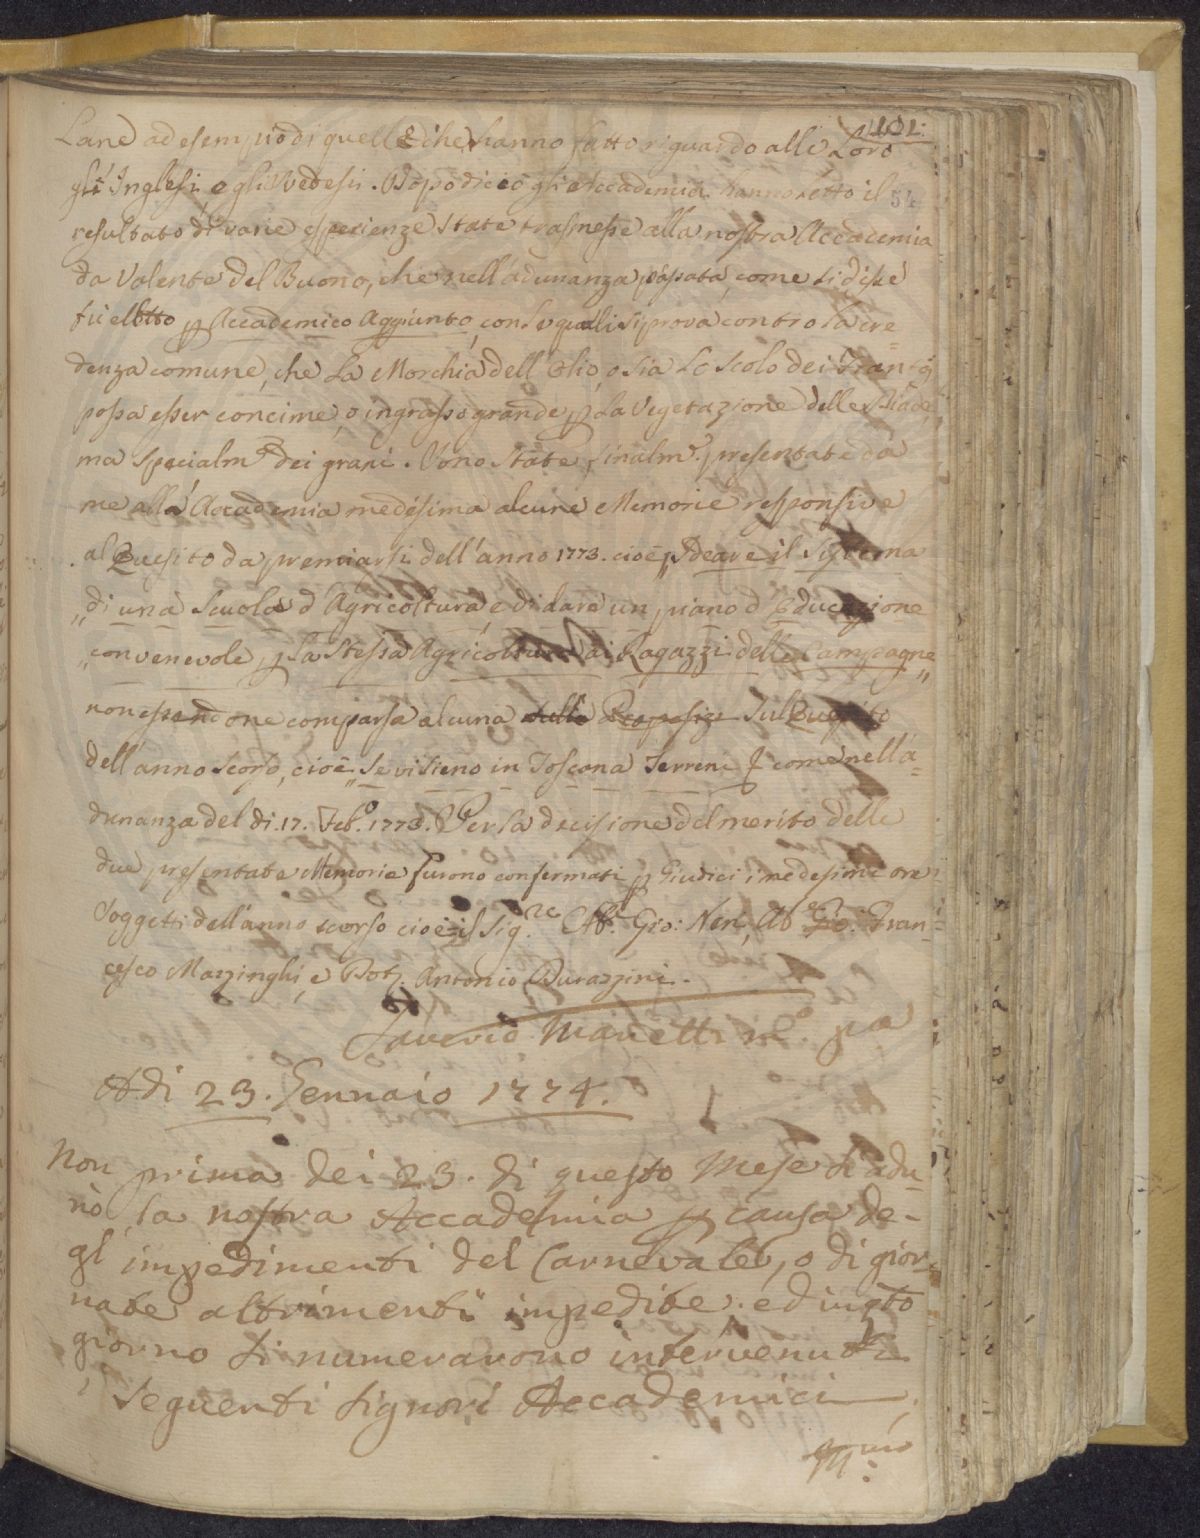 101.
Lane ad esempio di quelle che hanno fatto riguardo alle Loro
gl'Inglesi, e gli Svedesi. Dopo di ciò gli Accademici hanno letto il
54
resultato di varie esperienze State trasmesse alla nostra Accademia
da Valente Del Buono, che nell'adunanza passata, come si disse
fù eletto p Accademico Aggiunto, con le quali si prova contro la cre=
denza comune, che La Morchia dell'Olio, o sia Lo Scolo dei
possa esser concime, o ingrasso grande p La Vegetazione delle Biade,
ma Specialm.e dei grani. Sono State finalm.e presentate da
me alla Accademia medesima alcune Memorie responsive
al Quesito da premiarsi dell'anno 1773. cioè Ideare il Sistema
„ di una Scuola d'Agricoltura, e di dare un piano d'Educazione
„ convenevole, p La Stessa Agricoltura ai Ragazzi delle Campagne „
non essendone comparsa alcuna sul Quesito
dell'anno scorso, cioè „ Se vi sieno in Toscana Terreni & come nell'a=
dunanza del dì 17. Feb.o 1773. Per la decisione del merito delle
due presentate Memorie furono confermati p Giudici i medesimi tre
Soggetti dell'anno scorso cioè il Sig.re Ab. Gio: Neri, Ab Gio: Fran=
cesco Mazzinghi, e Dott. Antonio Durazzini.
Saverio Manetti
Adì 23. Gennaio 1774.
Non prima dei 23. di questo Mese si adu-
nò la nostra Accademia p causa de-
gl'impedimenti del Carnevale, o di gior-
nate altrimenti impedite. ed in q.sto
giorno si numerarono intervenuti
i seguenti Signori Accademici